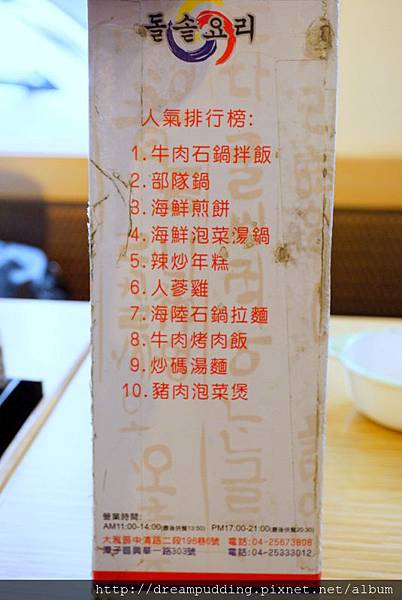 돌솥요리
人氣排行榜:
1. 牛肉石鍋拌飯
2. 部隊鍋
3. 海鮮煎餅
4. 海鮮泡菜湯鍋
5. 辣炒年糕
6. 人蔘雞
7. 海陸石鍋拉麵
8. 牛肉烤肉飯
9. 炒碼湯麵
10. 豬肉泡菜煲
營業時間:
AM11:00-14:00(最後供餐13:50) PM17:00-21:00(最後供餐20:30)
大雅區中清路二段196巷6號 電話:04-25673808
潭子區興華一路303號 電話:04-25333012
http://dreampudding.pixnet.net/album